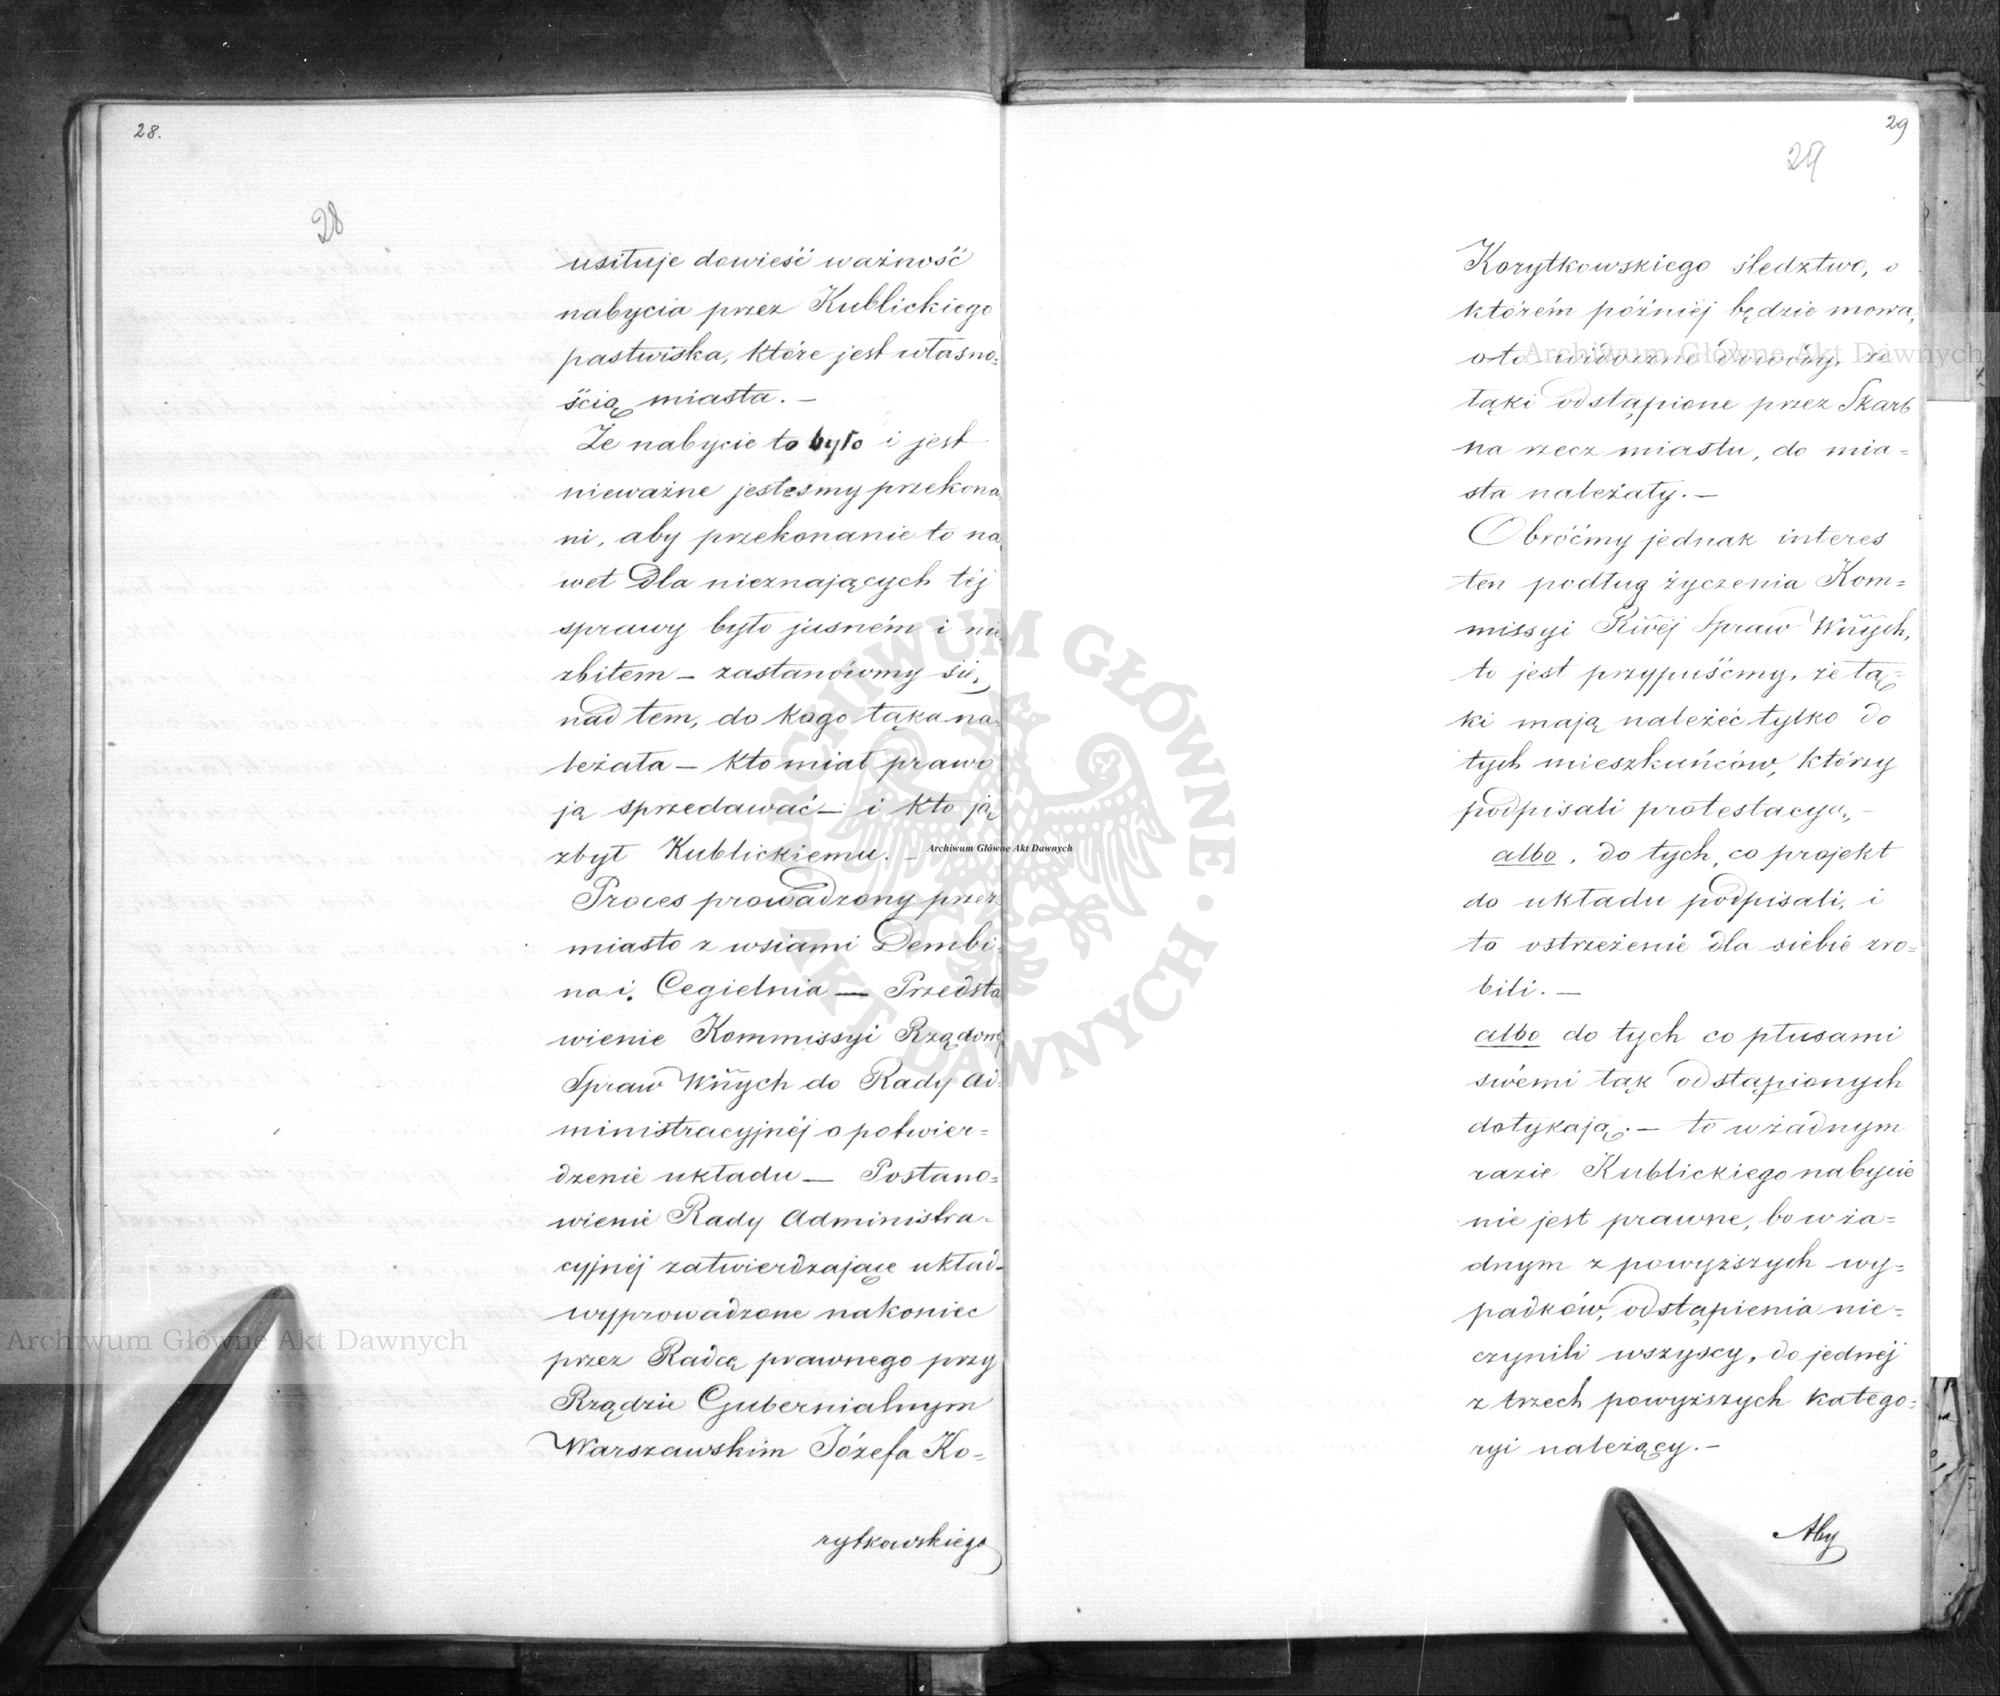 28.
28
usiłuje dowieść ważność
nabycia przez Kublickiego
pastwiska, które jest własno=
ścią miasta. —
Że nabycie to było i jest
nieważne jestesmy przekona
ni, aby przekonanie to na
wet dla nieznających téj
sprawy było jasném i nie
zbitem — zastanówmy się
nad tem, do kogo łąka na
leżała — kto miał prawo
ją sprzedawać — i kto ją
zbył Kublickiemu. —
Proces prowadzony przez
miasto z wsiami Dembi=
na i Cegielnia — Przedsta
wienie Kommissyi Rządowéj
Spraw Wñych do Rady Ad=
ministracyjnéj o potwier=
dzenie układu — Postano=
wienie Rady Administra=
cyjnéj zatwierdzające układ—
wyprowadzone nakoniec
przez Radcę prawnego przy
Rządzie Gubernialnym
Warszawskim Józefa Ko=
rytkowskiego
29
29
Korytkowskiego śledztwo, o
którém późniéj będzie mowa,
oto widoczne dowody, że
łąki odstąpione przez Skarb
na rzecz miasta, do mia=
sta należały. —
Obróćmy jednak interes
ten podług życzenia Kom=
missyi Rwéj Spraw Wñych,
to jest przypuśćmy, że łą=
ki mają należéć tylko do
tych mieszkańców, którzy
podpisali protestacyą, —
albo, do tych, co projekt
do układu podpisali, i
to ostrzeżenie dla siebie zro=
bili. —
albo do tych co płusami
swémi łąk odstąpionych
dotykają. — to w żadnym
razie Kublickiego nabycie
nie jest prawne, bo w ża=
dnym z powyższych wy=
padków, odstąpienia nie=
czynili wszyscy, do jednéj
z trzech powyższych katego=
ryi należący. —
Aby
Archiwum Główne Akt Dawnych
Archiwum Główne Akt Dawnych
Archiwum Główne Akt Dawnych
ARCHIWUM GŁÓWNE AKT DAWNYCH